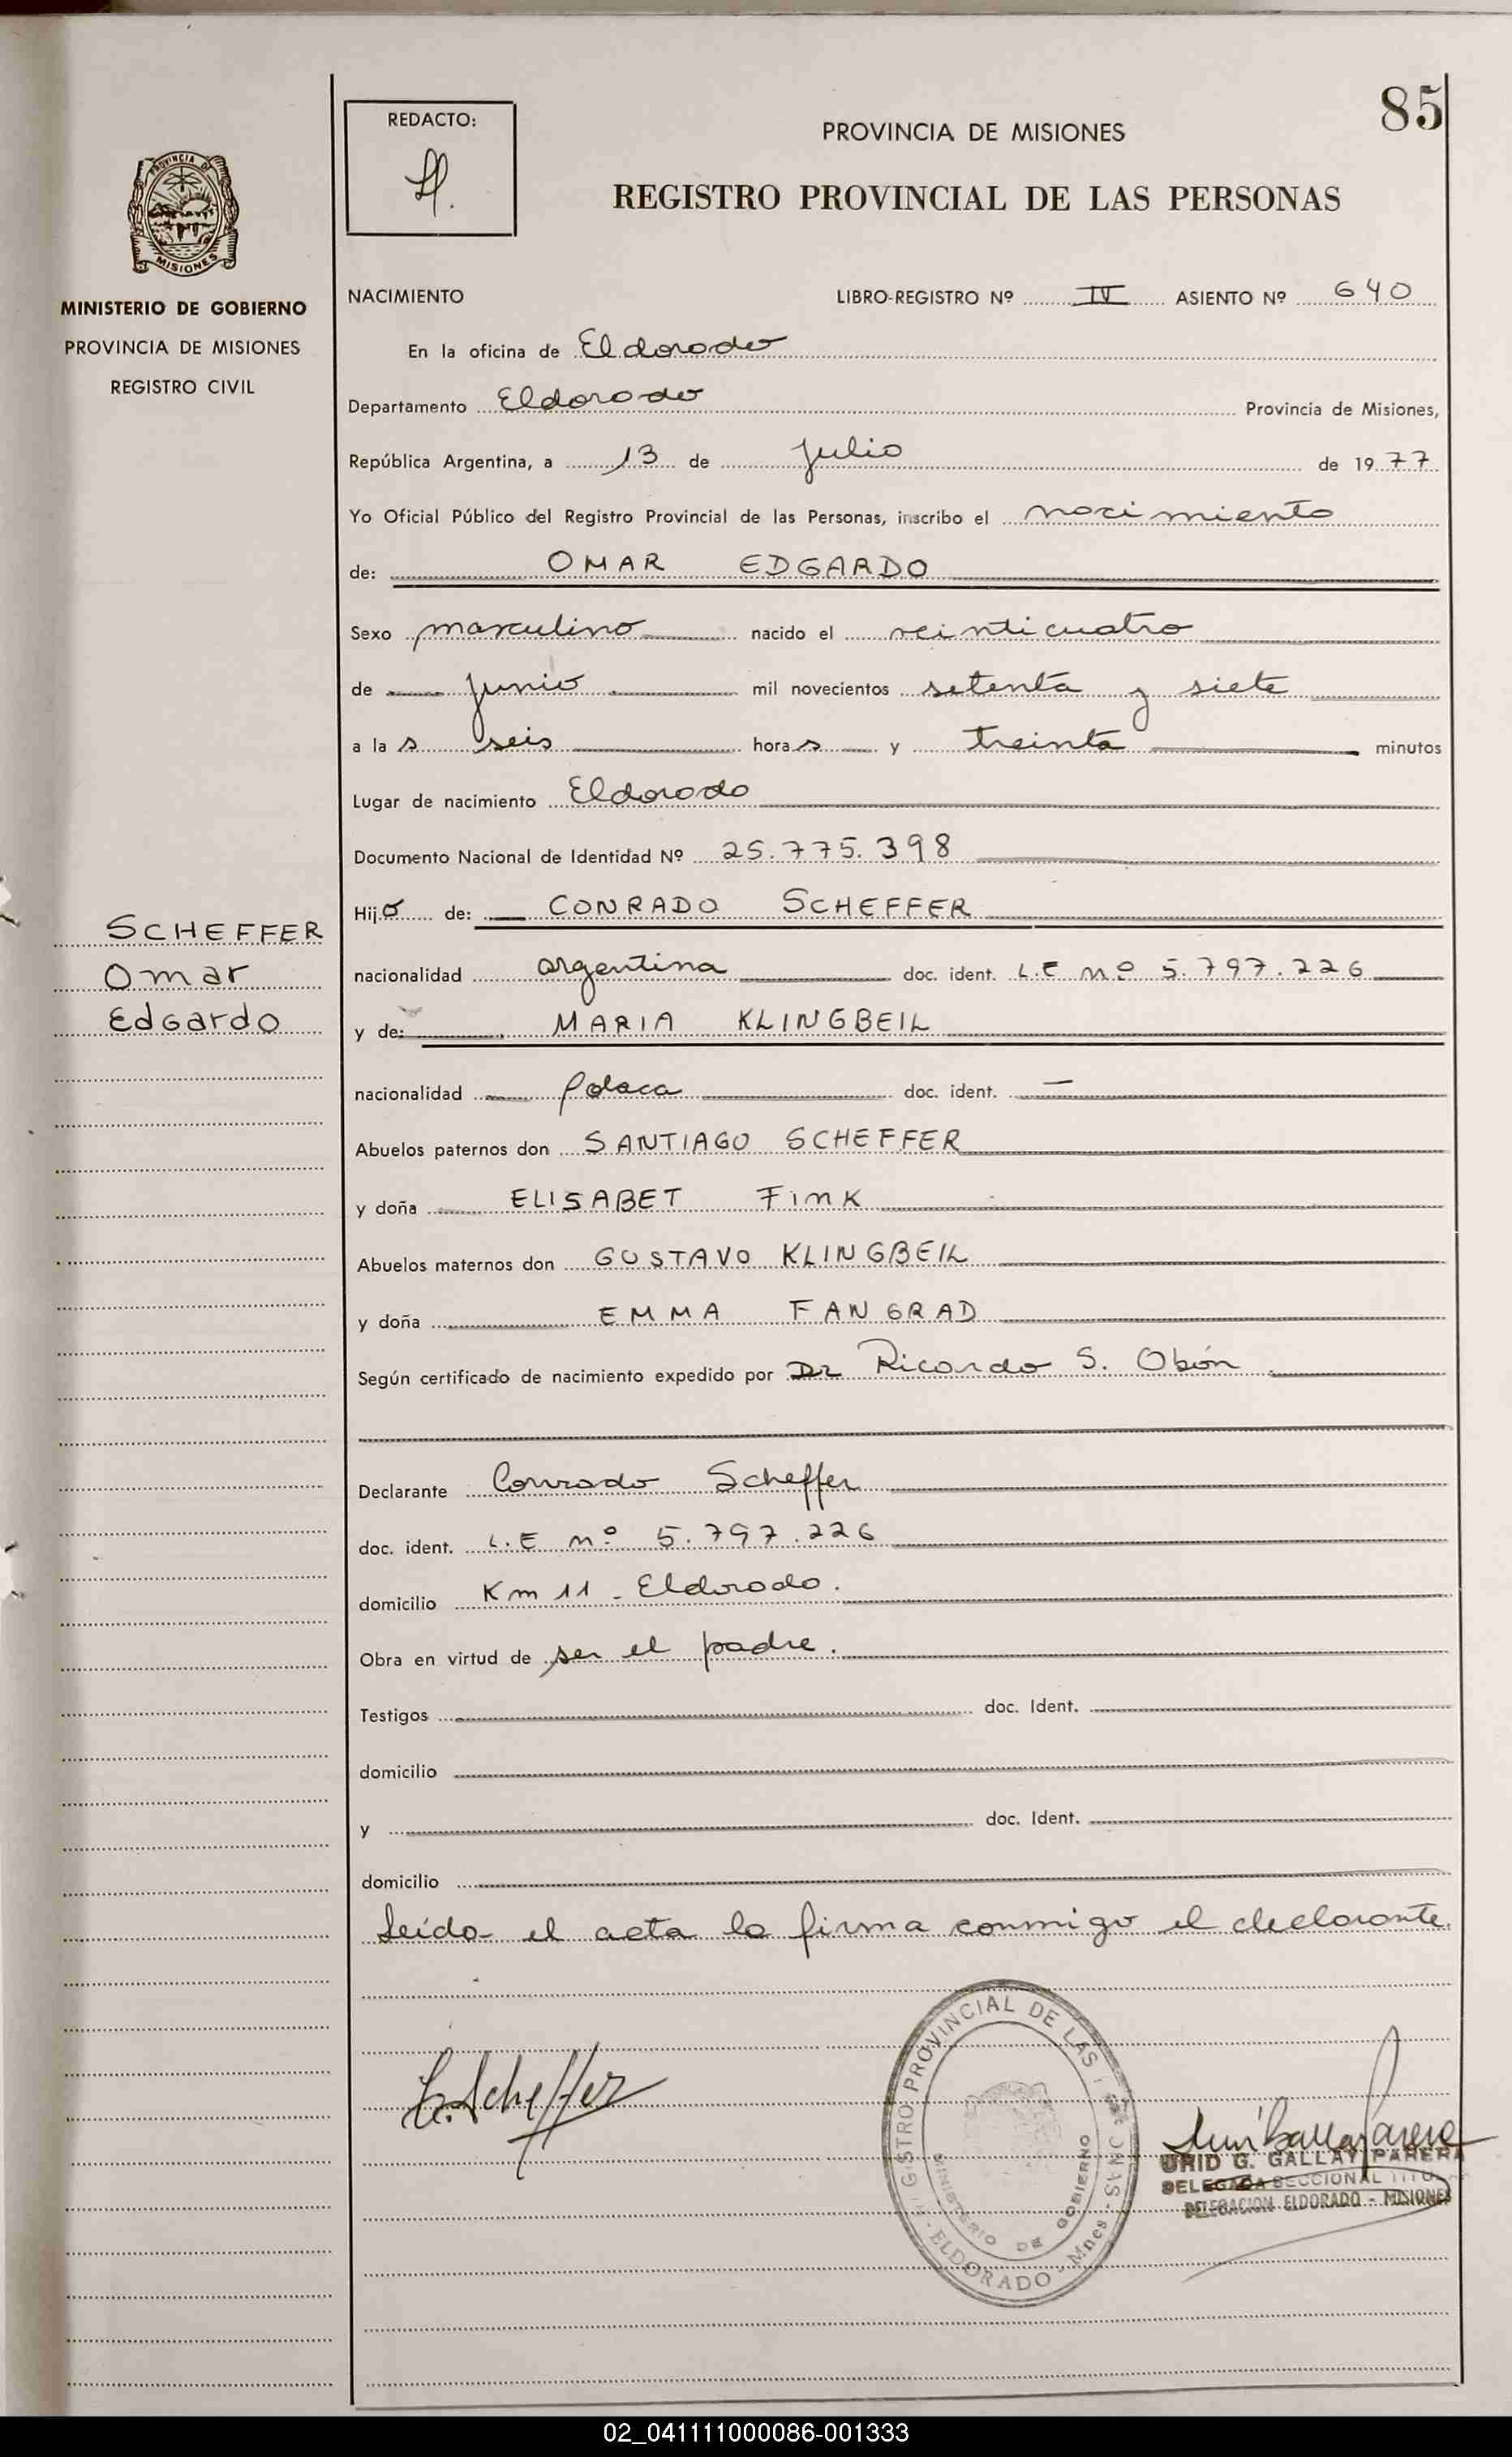 85
REDACTO:
PROVINCIA DE MISIONES
REGISTRO PROVINCIAL DE LAS PERSONAS
PROVINCIA DE
MISIONES
MINISTERIO DE GOBIERNO
PROVINCIA DE MISIONES
REGISTRO CIVIL
NACIMIENTO LIBRO-REGISTRO Nº IV ASIENTO Nº 640
En la oficina de Eldorado
Departamento Eldorado Provincia de Misiones,
República Argentina, a 13 de Julio de 1977
Yo Oficial Público del Registro Provincial de las Personas, inscribo el nacimiento
de: OMAR EDGARDO
Sexo masculino nacido el veinticuatro
de junio mil novecientos setenta y siete
a las seis horas y treinta minutos
Lugar de nacimiento Eldorado
Documento Nacional de Identidad Nº 25.775.398
Hijo de: CONRADO SCHEFFER
SCHEFFER
Omar
Edgardo
nacionalidad argentina doc. ident. L.E nº 5.797.226
y de: MARIA KLINGBEIL
nacionalidad Polaca doc. ident. —
Abuelos paternos don SANTIAGO SCHEFFER
y doña ELISABET FINK
Abuelos maternos don GUSTAVO KLINGBEIL
y doña EMMA FANGRAD
Según certificado de nacimiento expedido por Dr Ricardo S. Obón
Declarante Conrado Scheffer
doc. ident. L.E nº 5.797.226
domicilio Km 11 - Eldorado.
Obra en virtud de ser el padre.
Testigos doc. Ident.
domicilio
y doc. Ident.
domicilio
Leída el acta la firma conmigo el declarante.
C. Scheffer
GISTRO PROVINCIAL DE LAS
MINISTERIO DE GOBIERNO
ELDORADO - Mnes
URID G. GALLAY PARERA
DELEGADA SECCIONAL TITU
DELEGACION ELDORADO - MISIONES
02_041111000086-001333